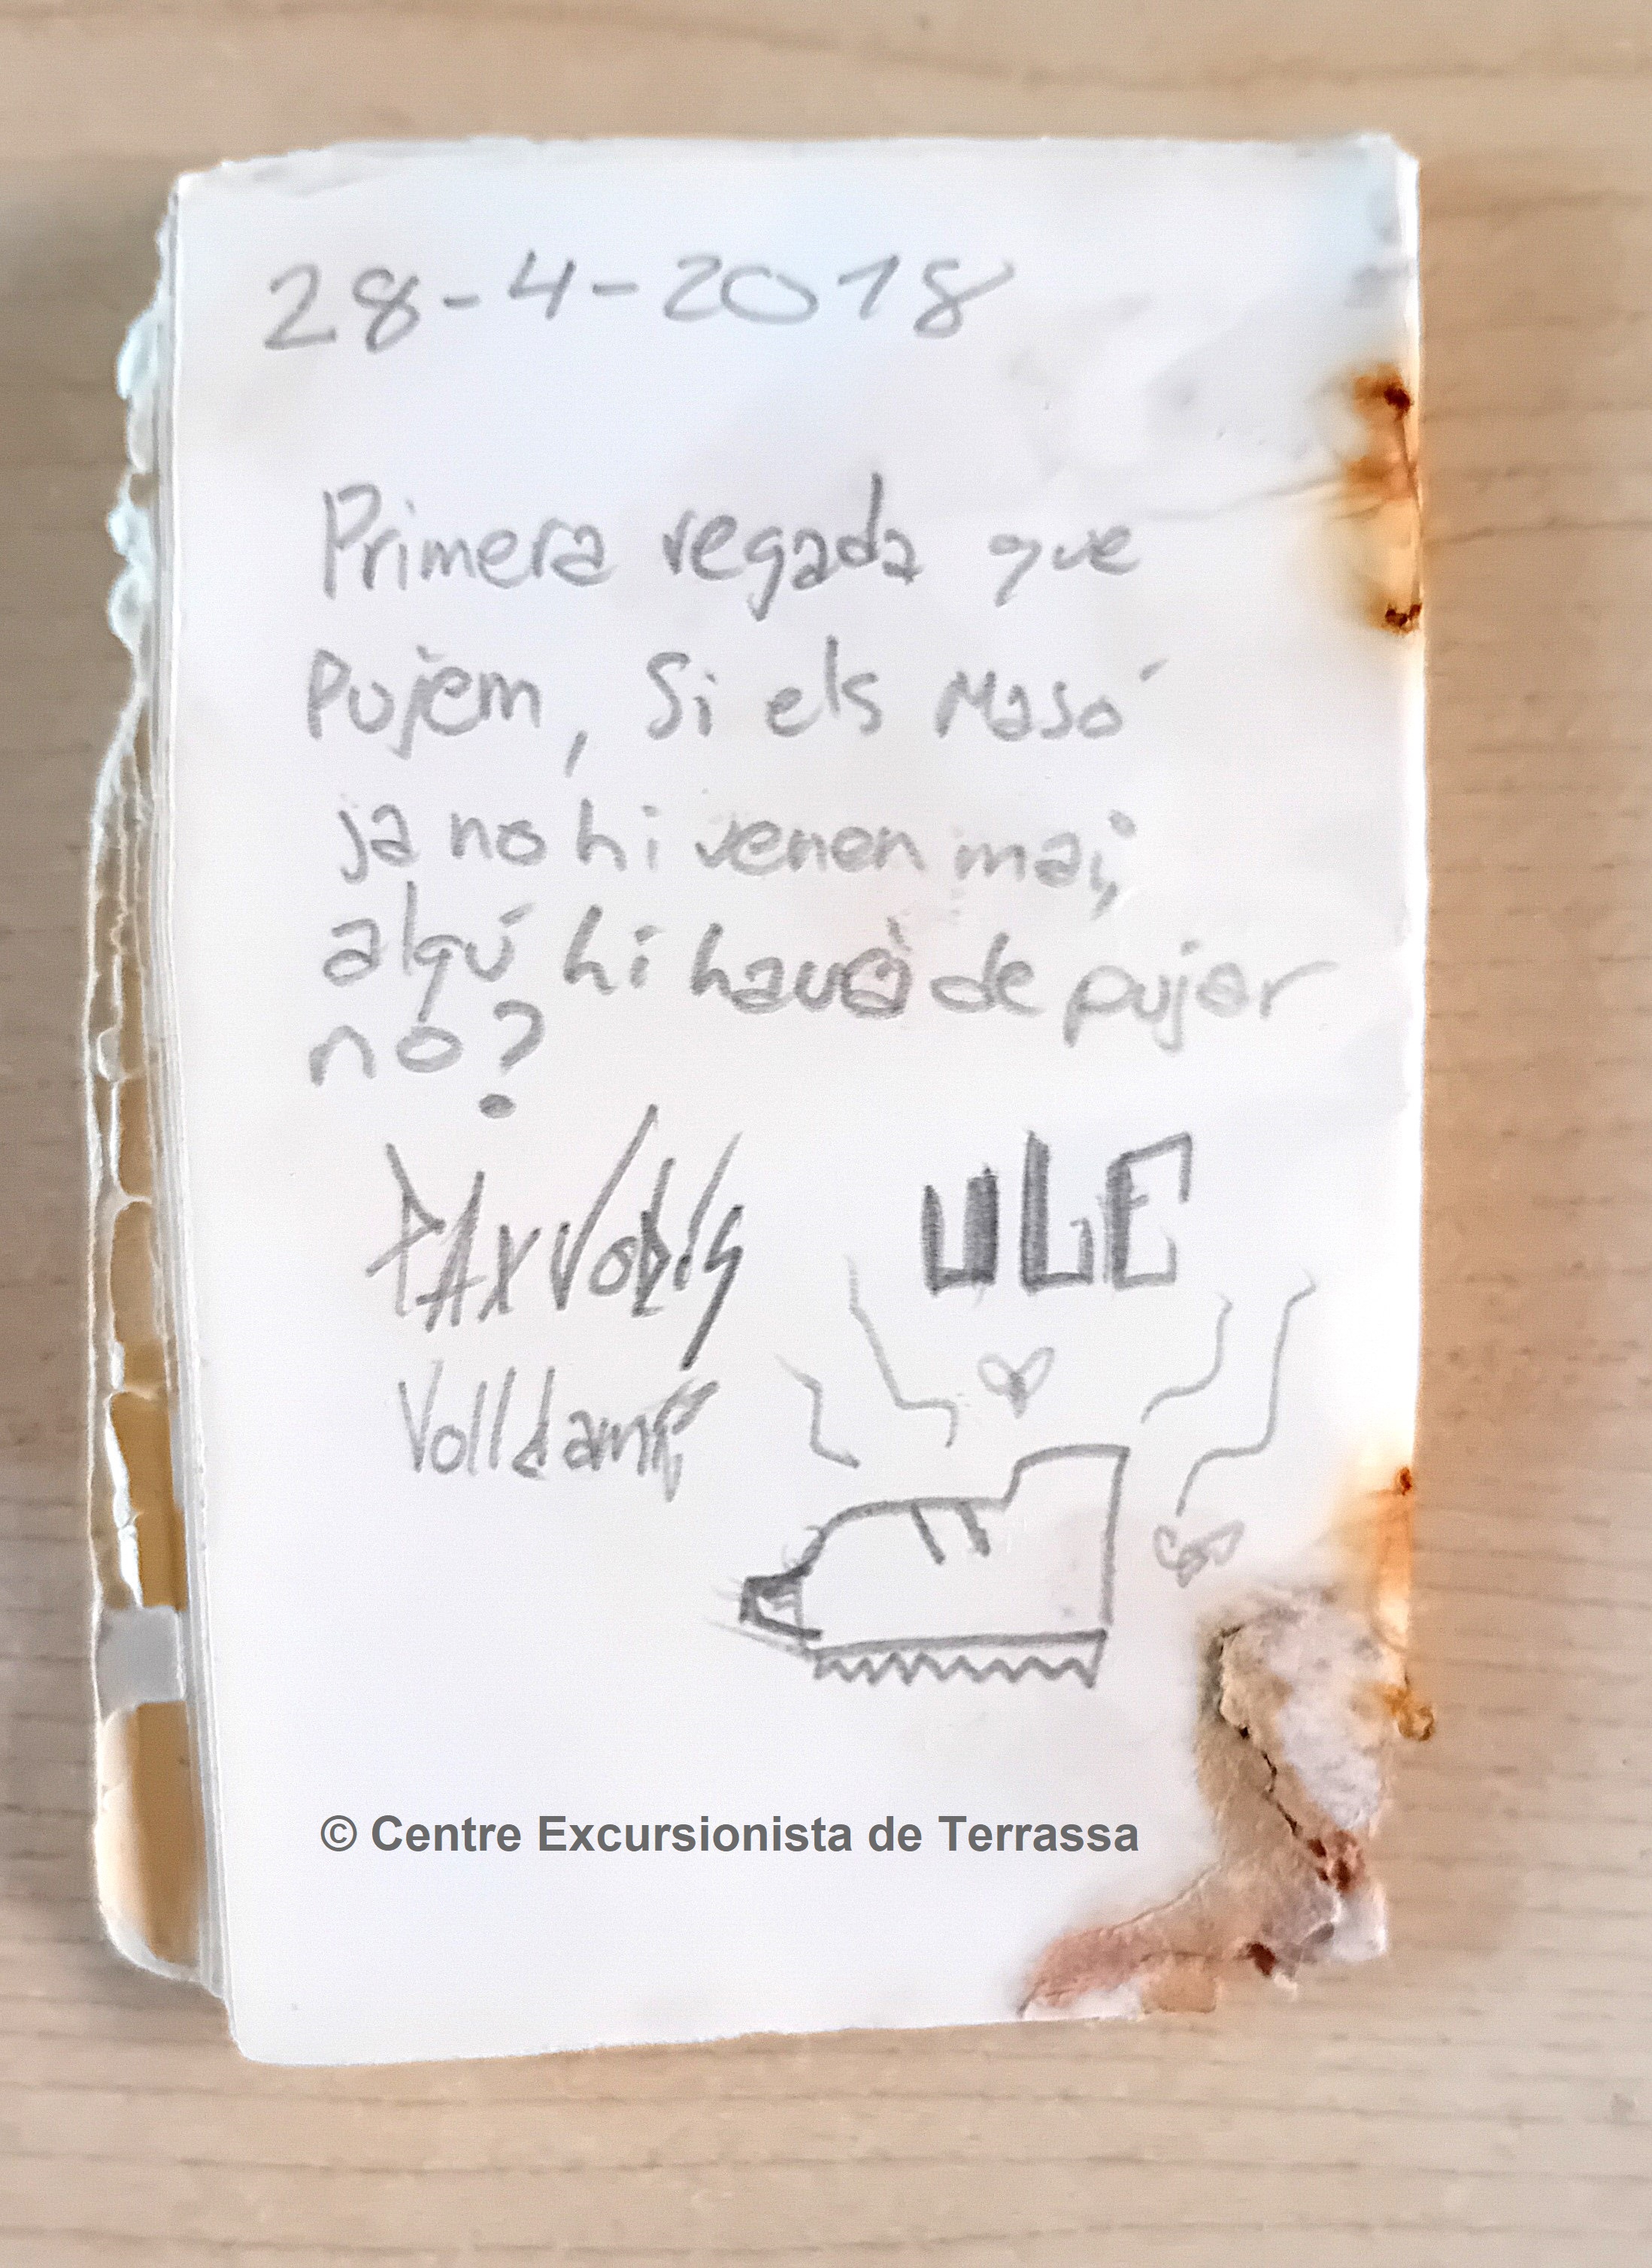 28-4-2018
Primera vegada que
Pujem, Si els Masó
ja no hi venen mai,
algú hi haurà de pujar
no?
PAXVobis
ULE
Volldampf
© Centre Excursionista de Terrassa